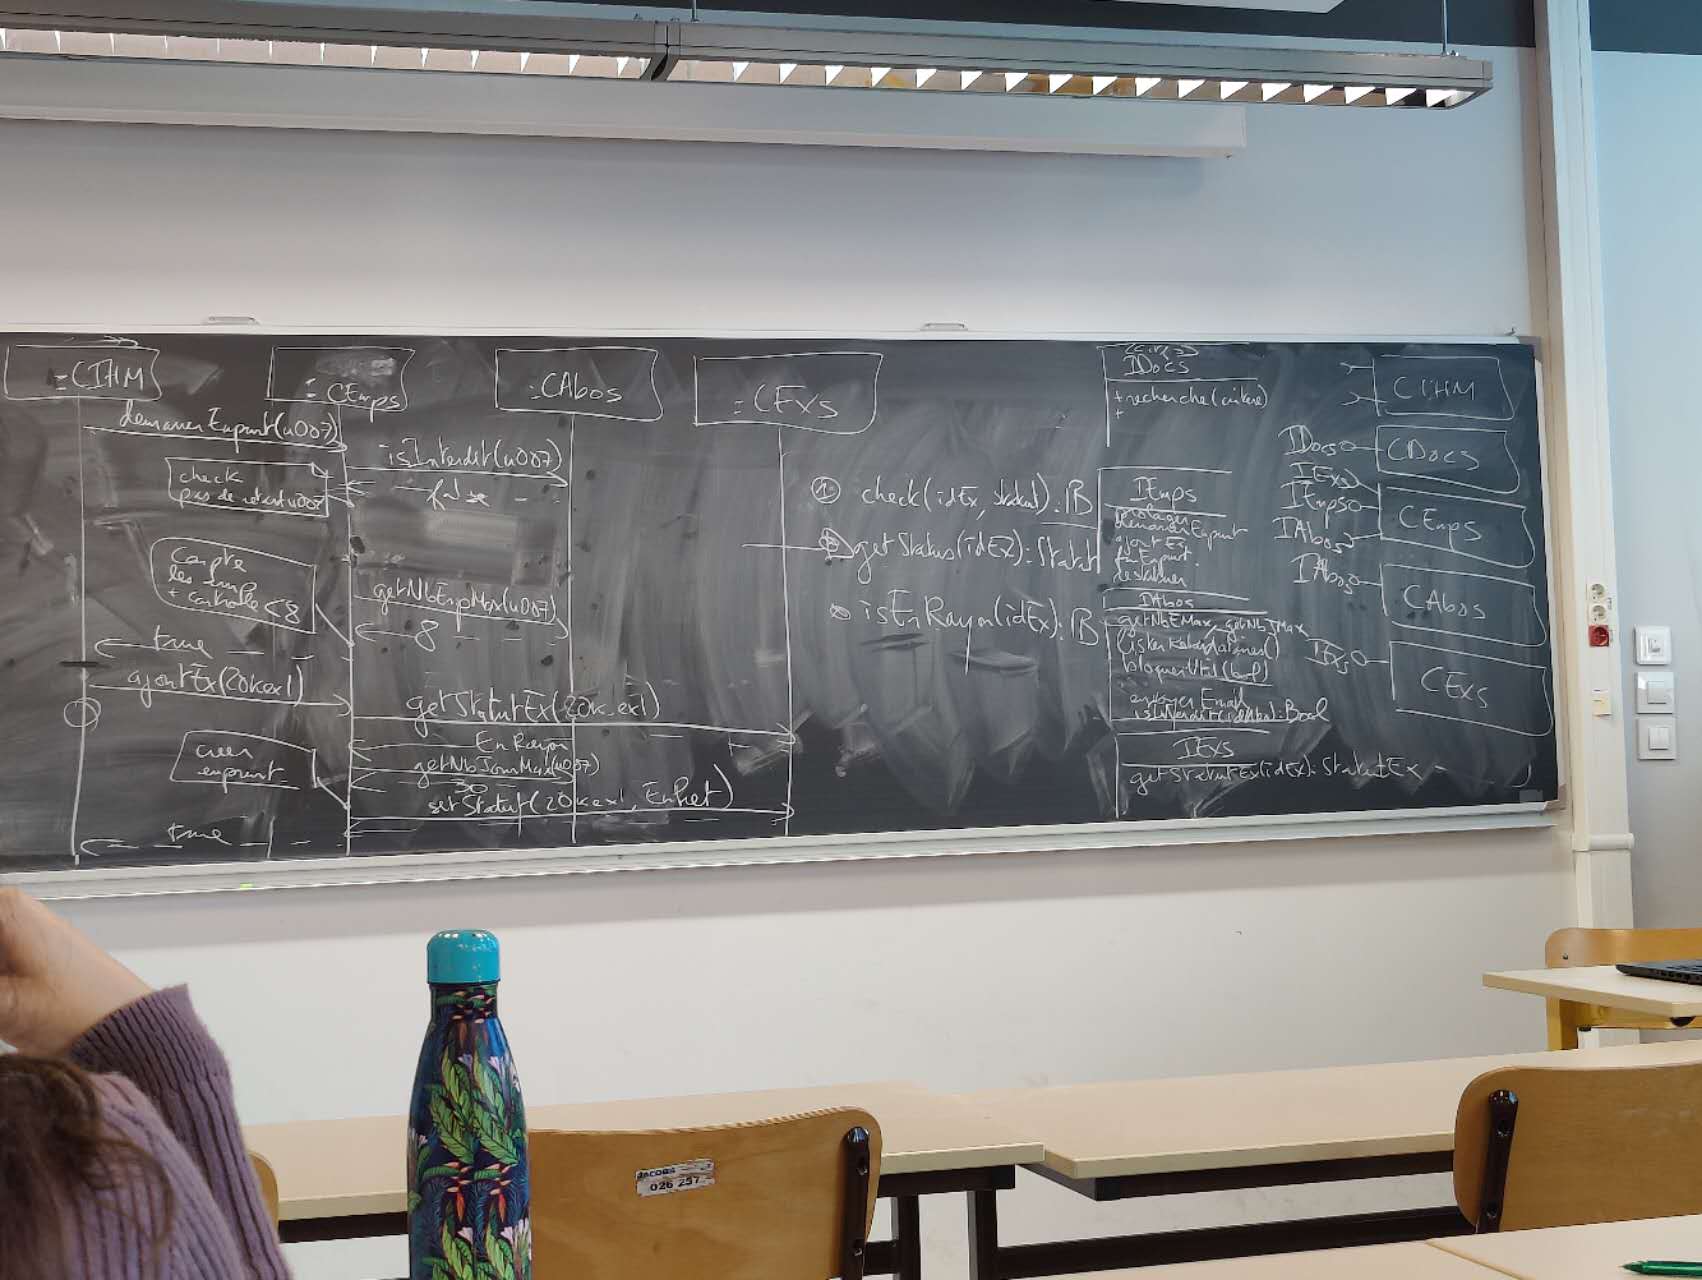 :CIHM
:CEmps
:CAbos
:CExs
demarrerEmprunt(u007)
isInterdit(u007)
false
check
pas de retard u007
compte
les emp
+ contrôle < 8
getNbEmpMax(u007)
8
true
ajoutEx(20kex1)
getStatutEx(20k.ex1)
En Rayon
getNbJourMax(u007)
30
creer
emprunt
setStatut(20kex1, EnPret)
true
① check(idEx, statut): B
getStatus(idEx): Statut
isEnRayon(idEx): B
IDocs
+ recherche(critere)
+
IEmps
demarrerEmprunt
ajoutEx
finEmprunt
restituer
IAbos
getNbEMax, getNbJMax
bloquerUtil(bool)
envoyer Email
isInterdit(idAbo): Bool
IExs
getStatutEx(idEx): StatutEx
CIHM
IDocs
CDocs
IExs
IEmps
CEmps
IAbos
IAbos
CAbos
IExs
CExs
JACOBS
026 257